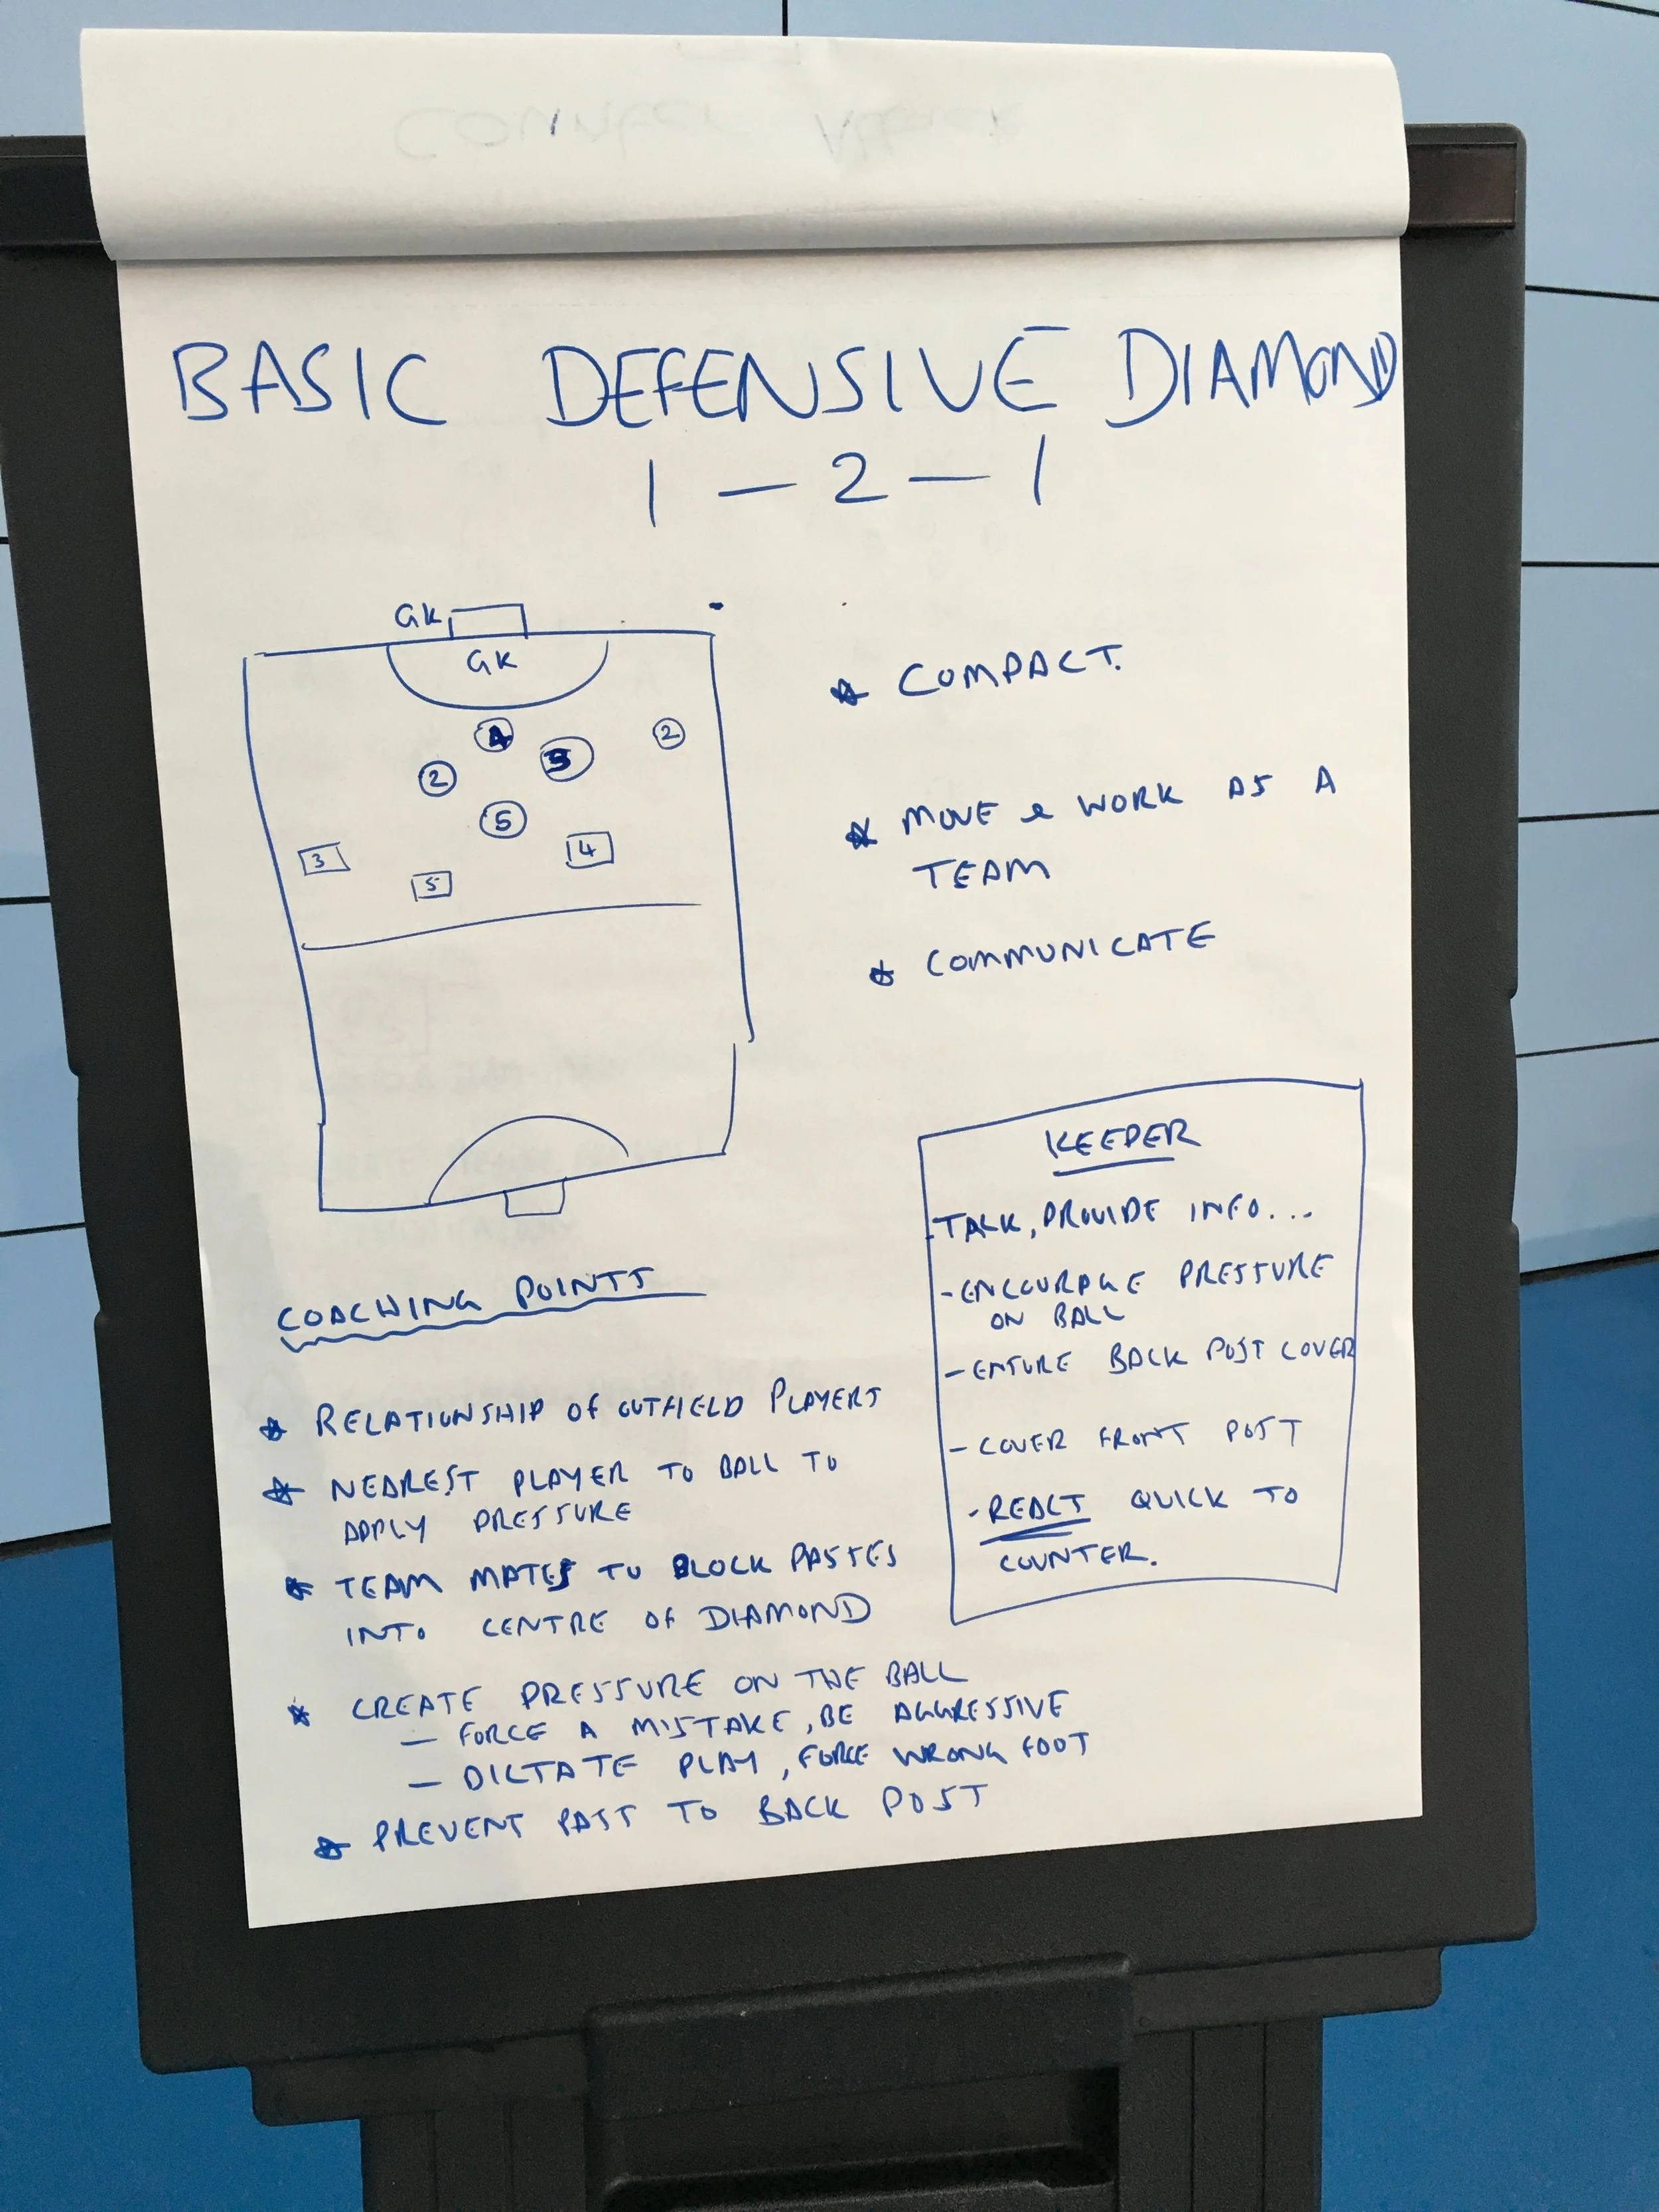 Counter Attack
BASIC DEFENSIVE DIAMOND
1 - 2 - 1
GK
GK
4
3
2
2
5
3
4
5
* COMPACT.
* MOVE & WORK AS A
TEAM
* COMMUNICATE
KEEPER
- TALK, PROVIDE INFO...
- ENCOURAGE PRESSURE
ON BALL
- ENSURE BACK POST COVER
- COVER FRONT POST
- REACT QUICK TO
COUNTER.
COACHING POINTS
* RELATIONSHIP OF OUTFIELD PLAYERS
* NEAREST PLAYER TO BALL TO
APPLY PRESSURE
* TEAM MATES TO BLOCK PASSES
INTO CENTRE OF DIAMOND
* CREATE PRESSURE ON THE BALL
- FORCE A MISTAKE, BE AGGRESSIVE
- DICTATE PLAY, FORCE WRONG FOOT
* PREVENT PASS TO BACK POST